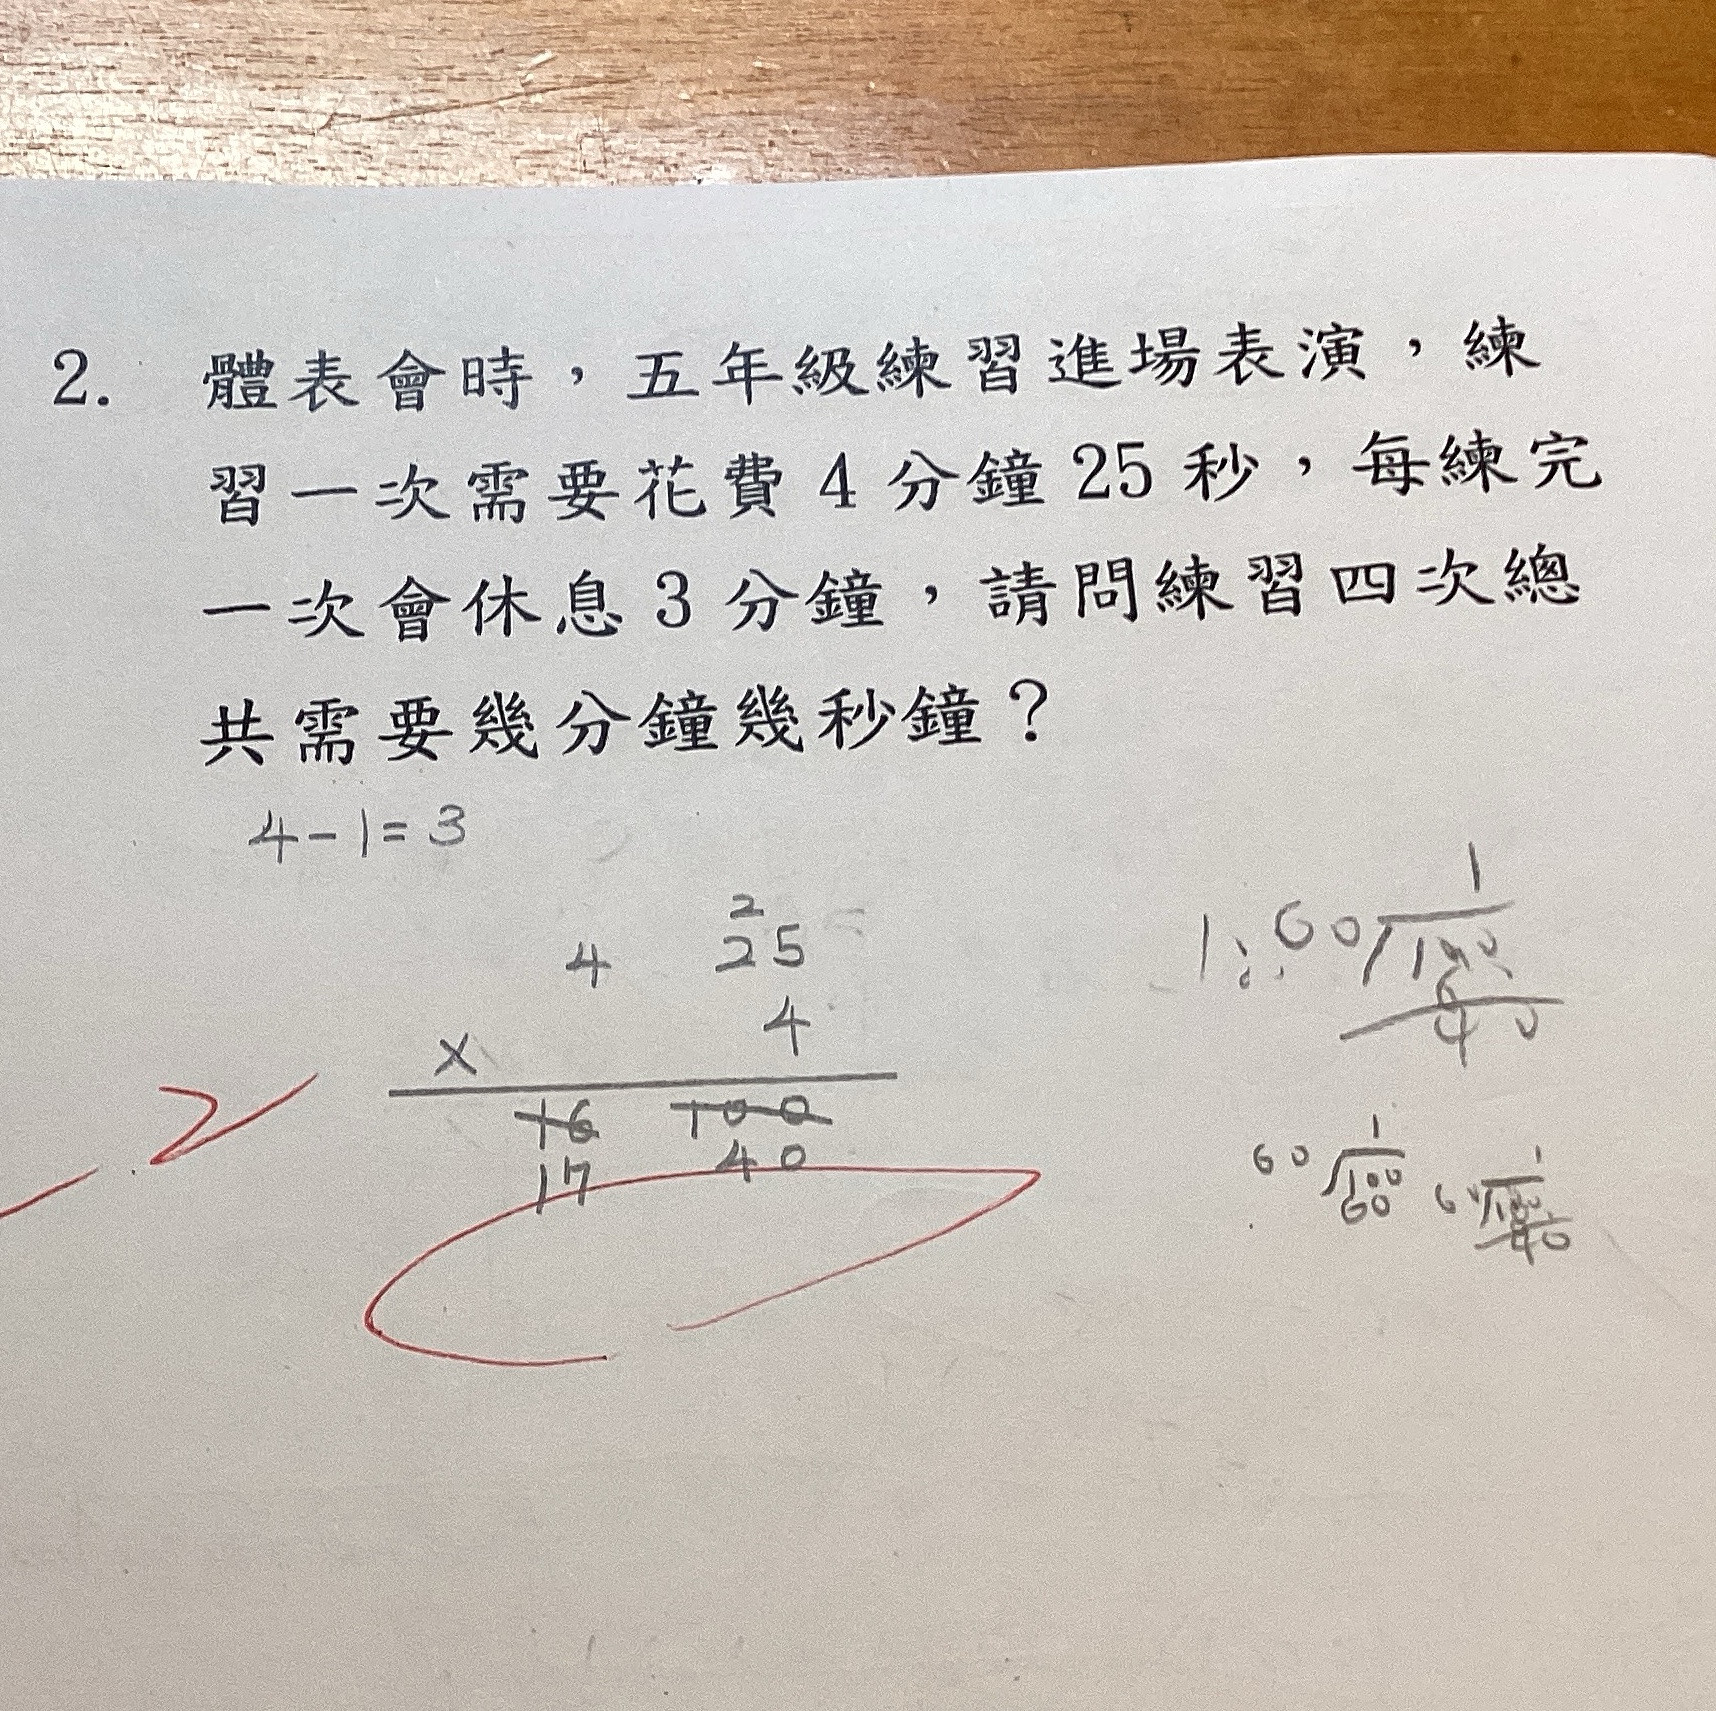 2. 體表會時，五年級練習進場表演，練
習一次需要花費4分鐘25秒，每練完
一次會休息3分鐘，請問練習四次總
共需要幾分鐘幾秒鐘？
4-1=3
2
4 25
× 4
16 100
17 40
2
1
60
40
1
60 100
60
1
40